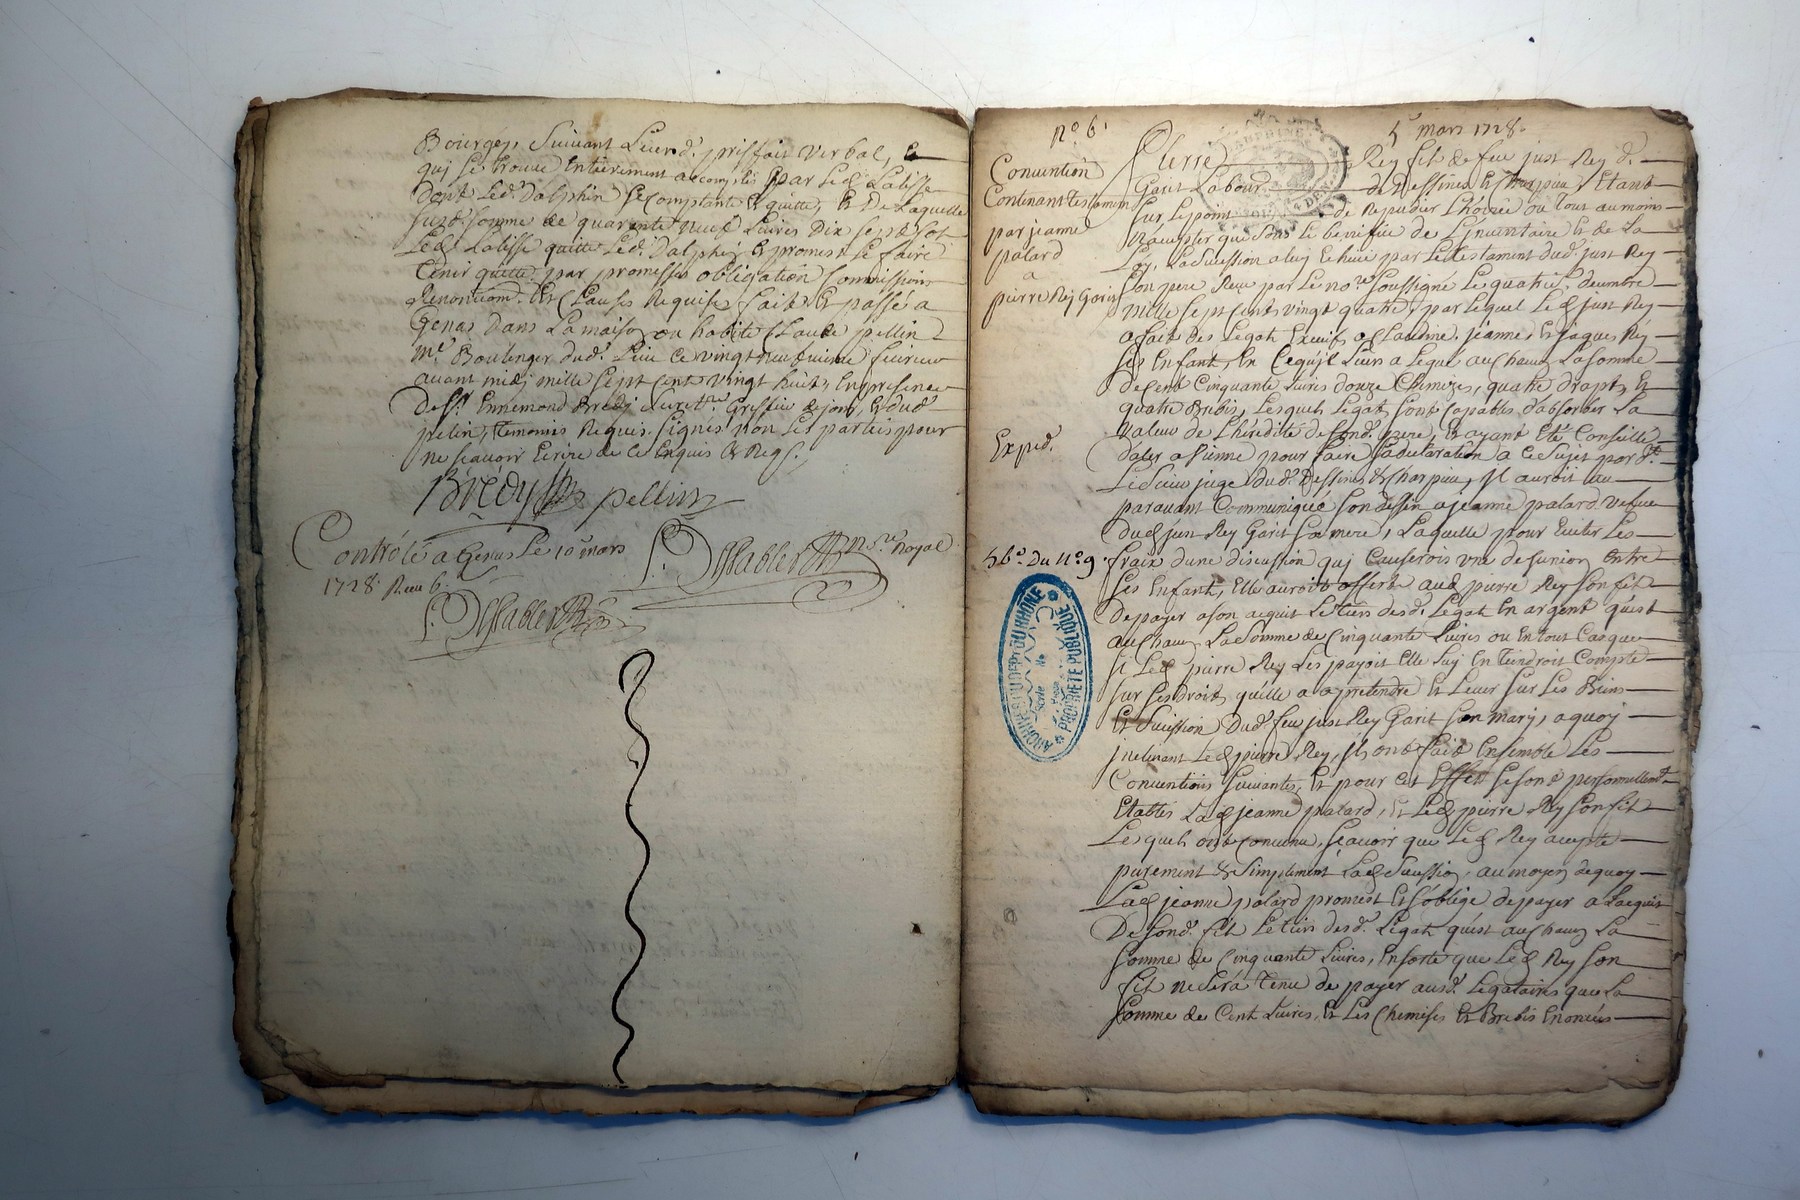 Bourgey, Suivant Leurd. prisfait verbal, &
quj se trouve Entierement accomplis par Led. Labisse
dont Led. dalphin se Comptante & quitte, & De Laquelle
susd. somme de quarente neuf Livres Dix sept sol
Led. Labisse quitte Led. Dalphin & promest Le faire
Tenir quitte, par promesses obligation soumissions
Renontiaon. & Clauses Requises fait & passé a
Genas Dans La maison ou habite Claude pellin
me. Boulenger dud. Lieu ce vingt neufvieme feuvrier
avant midj mille sept cent vingt huit, En presence
de sr. Ennemond Bredy Greffier & dud.
pelin, temoins Requis. signés non Les parties pour
ne scavoir Ecrire de ce Enquis & Reqs.
Brédy pellin
Controlé a Genas Le 10e mars
1728 Receu 6
nore. Royal
No. 6.
5e mars 1728.
Convention
Contenant
par jeanne
palard
a
pierre Rey Gorit
Exped.
Du No. 9.
Pierre Rey fils de feu just Rey d.
Garit Labour de Dessines & Charpieu, Etant
sur Le point de Repudier L'hoirie ou tout aumoins
N'accepter que sous Le benefice de L'Inventaire & de La
Loy, La succession a luy Echeue par Le testament dud. just Rey
son pere Receu par Le nore. soussigné Le quatrie. decembre
mille sept cents vingt quatre, par Lequel Led. just Rey
a fait des Legats a Claudine, jeanne, & jaques Rey
ses Enfants, En Cequ'jl Leur a Legué a chacun La somme
de Cent Cinquante Livres douze Chemizes, quatre draps, &
quatre Brebis, Lesquels Legats sont Capables d'absorber La
valeur de L'hérédité de sond. pere, & ayant Eté Conseillé
daler a vienne pour faire sa declaration a ce sujet pard.
Le sieur juge dud. Dessines & Charpieu, Jl auroit au
paravant Communiqué son dessin a jeanne palard vefve
dud. just Rey Garit sa mere, Laquelle pour Eviter Les
fraix dune discussion quj Causerois une desunion Entre
ses Enfants, Elle auroit offert aud. pierre Rey son fils
De payer a son acquit Le tiers desd. Legats En argent qu'est
a chacun La somme de Cinquante Livres ou En tout Cas que
si Led. pierre Rey Les payoit Elle Luy En tiendroit Compte
sur ses droits qu'elle a a pretendre & Lever sur Les Biens
& succession dud. feu just Rey Garit son mary, a quoy
jnclinant Led. pierre Rey, jls ont fait Ensemble Les
Conventions suivantes, & pour cet Effet se sont personnellemt.
Etablis Lad. jeanne palard, & Led. pierre Rey son fils
Lesquels ont Convenu, scavoir que Led. Rey accepte
purement & simplement Lad. succession, au moyen dequoy
Lad. jeanne palard promest & s'oblige de payer a Lacquit
De sond. fils Le tiers desd. Legats qu'est a chacun La
somme de Cinquante Livres, Ensorte que Led. Rey son
fils ne sera tenu de payer ausd. Legataires que La
somme de Cent Livres, & Les Chemises & Brebis Enoncés
Controlé
ARCHIVES DU DEPT DU RHÔNE
PROPRIETE PUBLIQUE